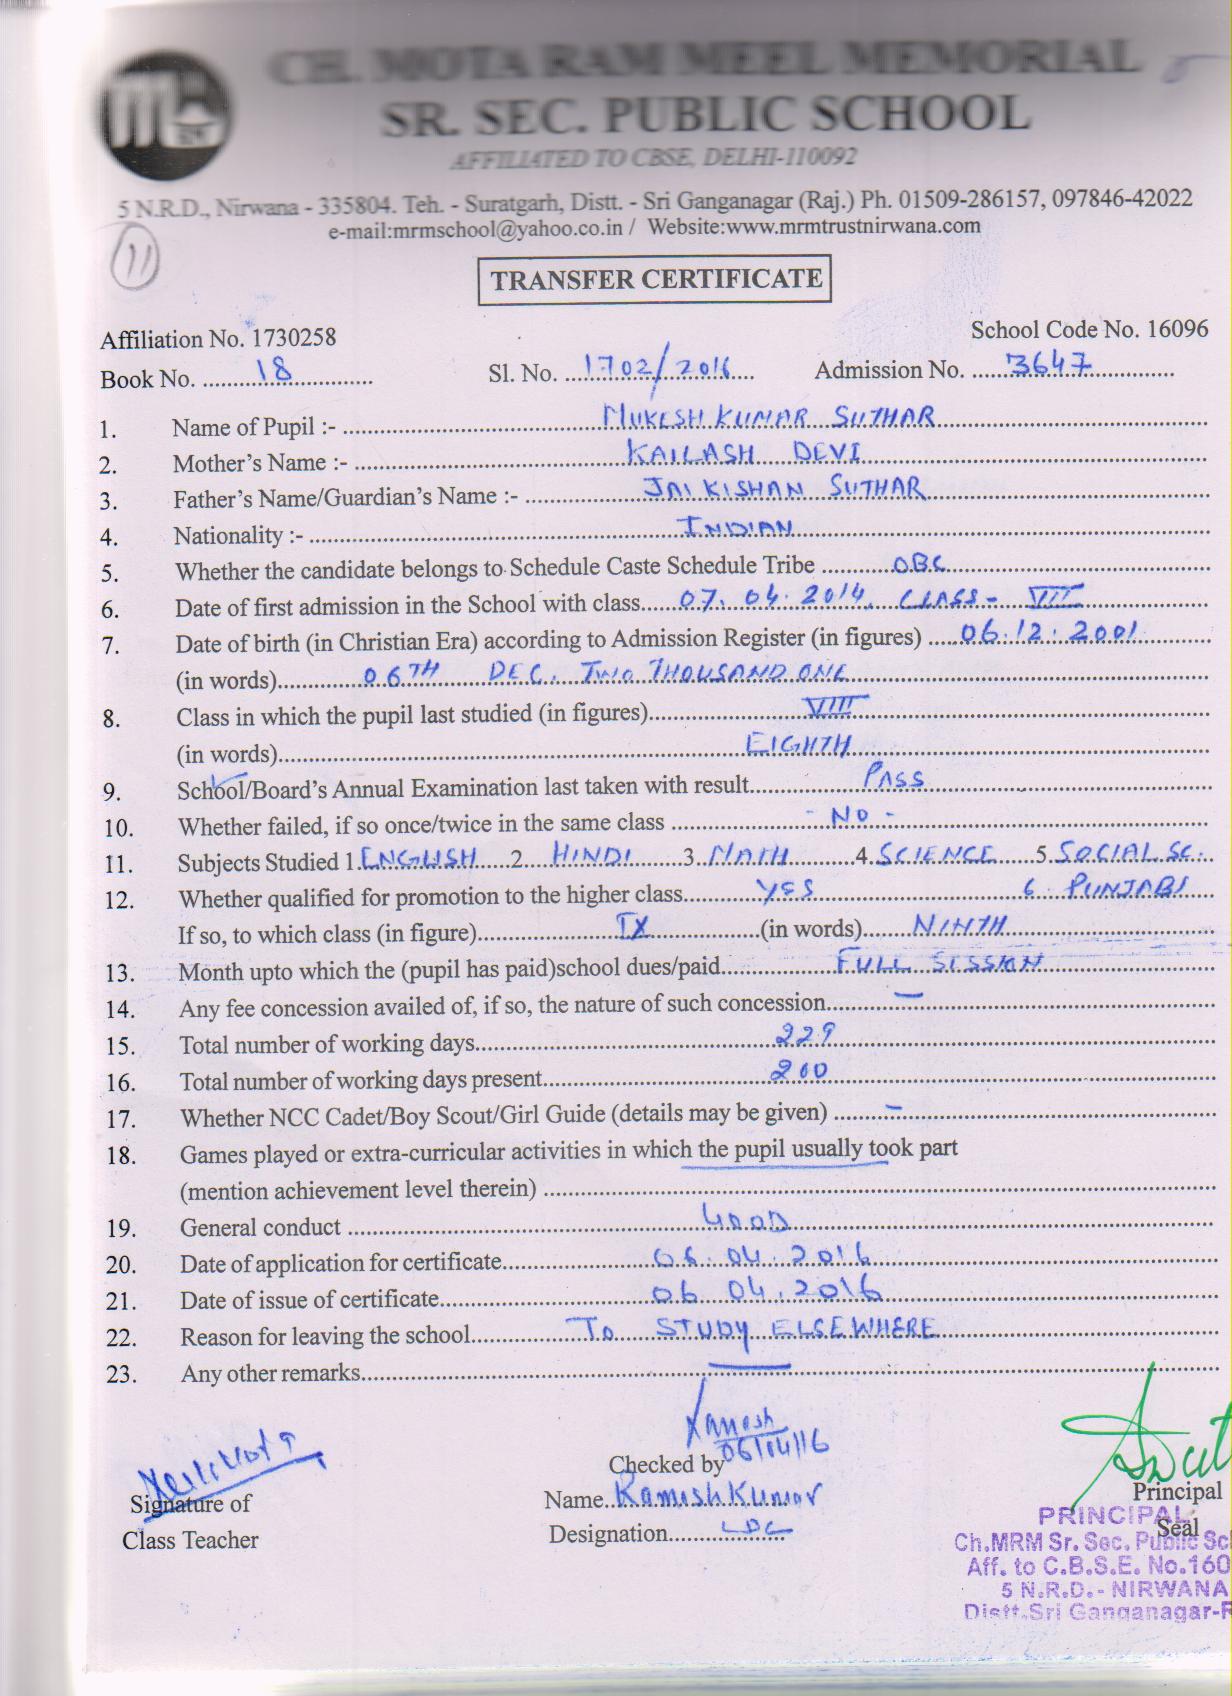 CH. MOTA RAM MEEL MEMORIAL
SR. SEC. PUBLIC SCHOOL
AFFILIATED TO CBSE, DELHI-110092
5 N.R.D., Nirwana - 335804. Teh. - Suratgarh, Distt. - Sri Ganganagar (Raj.) Ph. 01509-286157, 097846-42022
e-mail:mrmschool@yahoo.co.in / Website:www.mrmtrustnirwana.com
11
TRANSFER CERTIFICATE
Affiliation No. 1730258 School Code No. 16096
Book No. 18 Sl. No. 1702/2016 Admission No. 3647
1. Name of Pupil :- MUKESH KUMAR SUTHAR
2. Mother's Name :- KAILASH DEVI
3. Father's Name/Guardian's Name :- JAI KISHAN SUTHAR
4. Nationality :- INDIAN
5. Whether the candidate belongs to Schedule Caste Schedule Tribe OBC
6. Date of first admission in the School with class 07.04.2014, CLASS- VII
7. Date of birth (in Christian Era) according to Admission Register (in figures) 06.12.2001
(in words) 06TH DEC. TWO THOUSAND ONE
8. Class in which the pupil last studied (in figures) VIII
(in words) EIGHTH
9. School/Board's Annual Examination last taken with result PASS
10. Whether failed, if so once/twice in the same class - NO -
11. Subjects Studied 1. ENGLISH 2. HINDI 3. MATH 4. SCIENCE 5. SOCIAL SC.
12. Whether qualified for promotion to the higher class YES 6 PUNJABI
If so, to which class (in figure) IX (in words) NINTH
13. Month upto which the (pupil has paid)school dues/paid FULL SESSION
14. Any fee concession availed of, if so, the nature of such concession —
15. Total number of working days 229
16. Total number of working days present 200
17. Whether NCC Cadet/Boy Scout/Girl Guide (details may be given) –
18. Games played or extra-curricular activities in which the pupil usually took part
(mention achievement level therein)
19. General conduct GOOD
20. Date of application for certificate 06.04.2016
21. Date of issue of certificate 06.04.2016
22. Reason for leaving the school To STUDY ELSEWHERE
23. Any other remarks —
Ramesh
06/04/16
Signature of
Class Teacher
Checked by
Name Ramesh Kumar
Designation LDC
Principal
Seal
PRINCIPAL
Ch.MRM Sr. Sec. Public Sc
Aff. to C.B.S.E. No.160
5 N.R.D.- NIRWANA
Distt.Sri Ganganagar-R